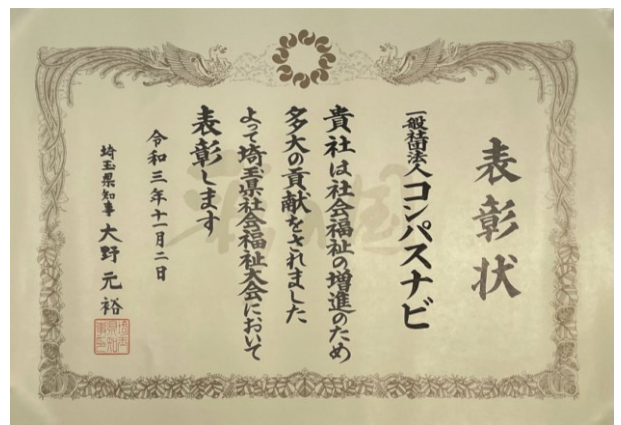 表彰状
一般社団法人コンパスナビ
貴社は社会福祉の増進のため
多大の貢献をされました
よって埼玉県社会福祉大会において
表彰します
令和三年十一月二日
埼玉県知事 大野元裕